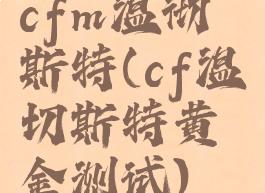 cfm温彻
斯特(cf温
切斯特黄
金测试)